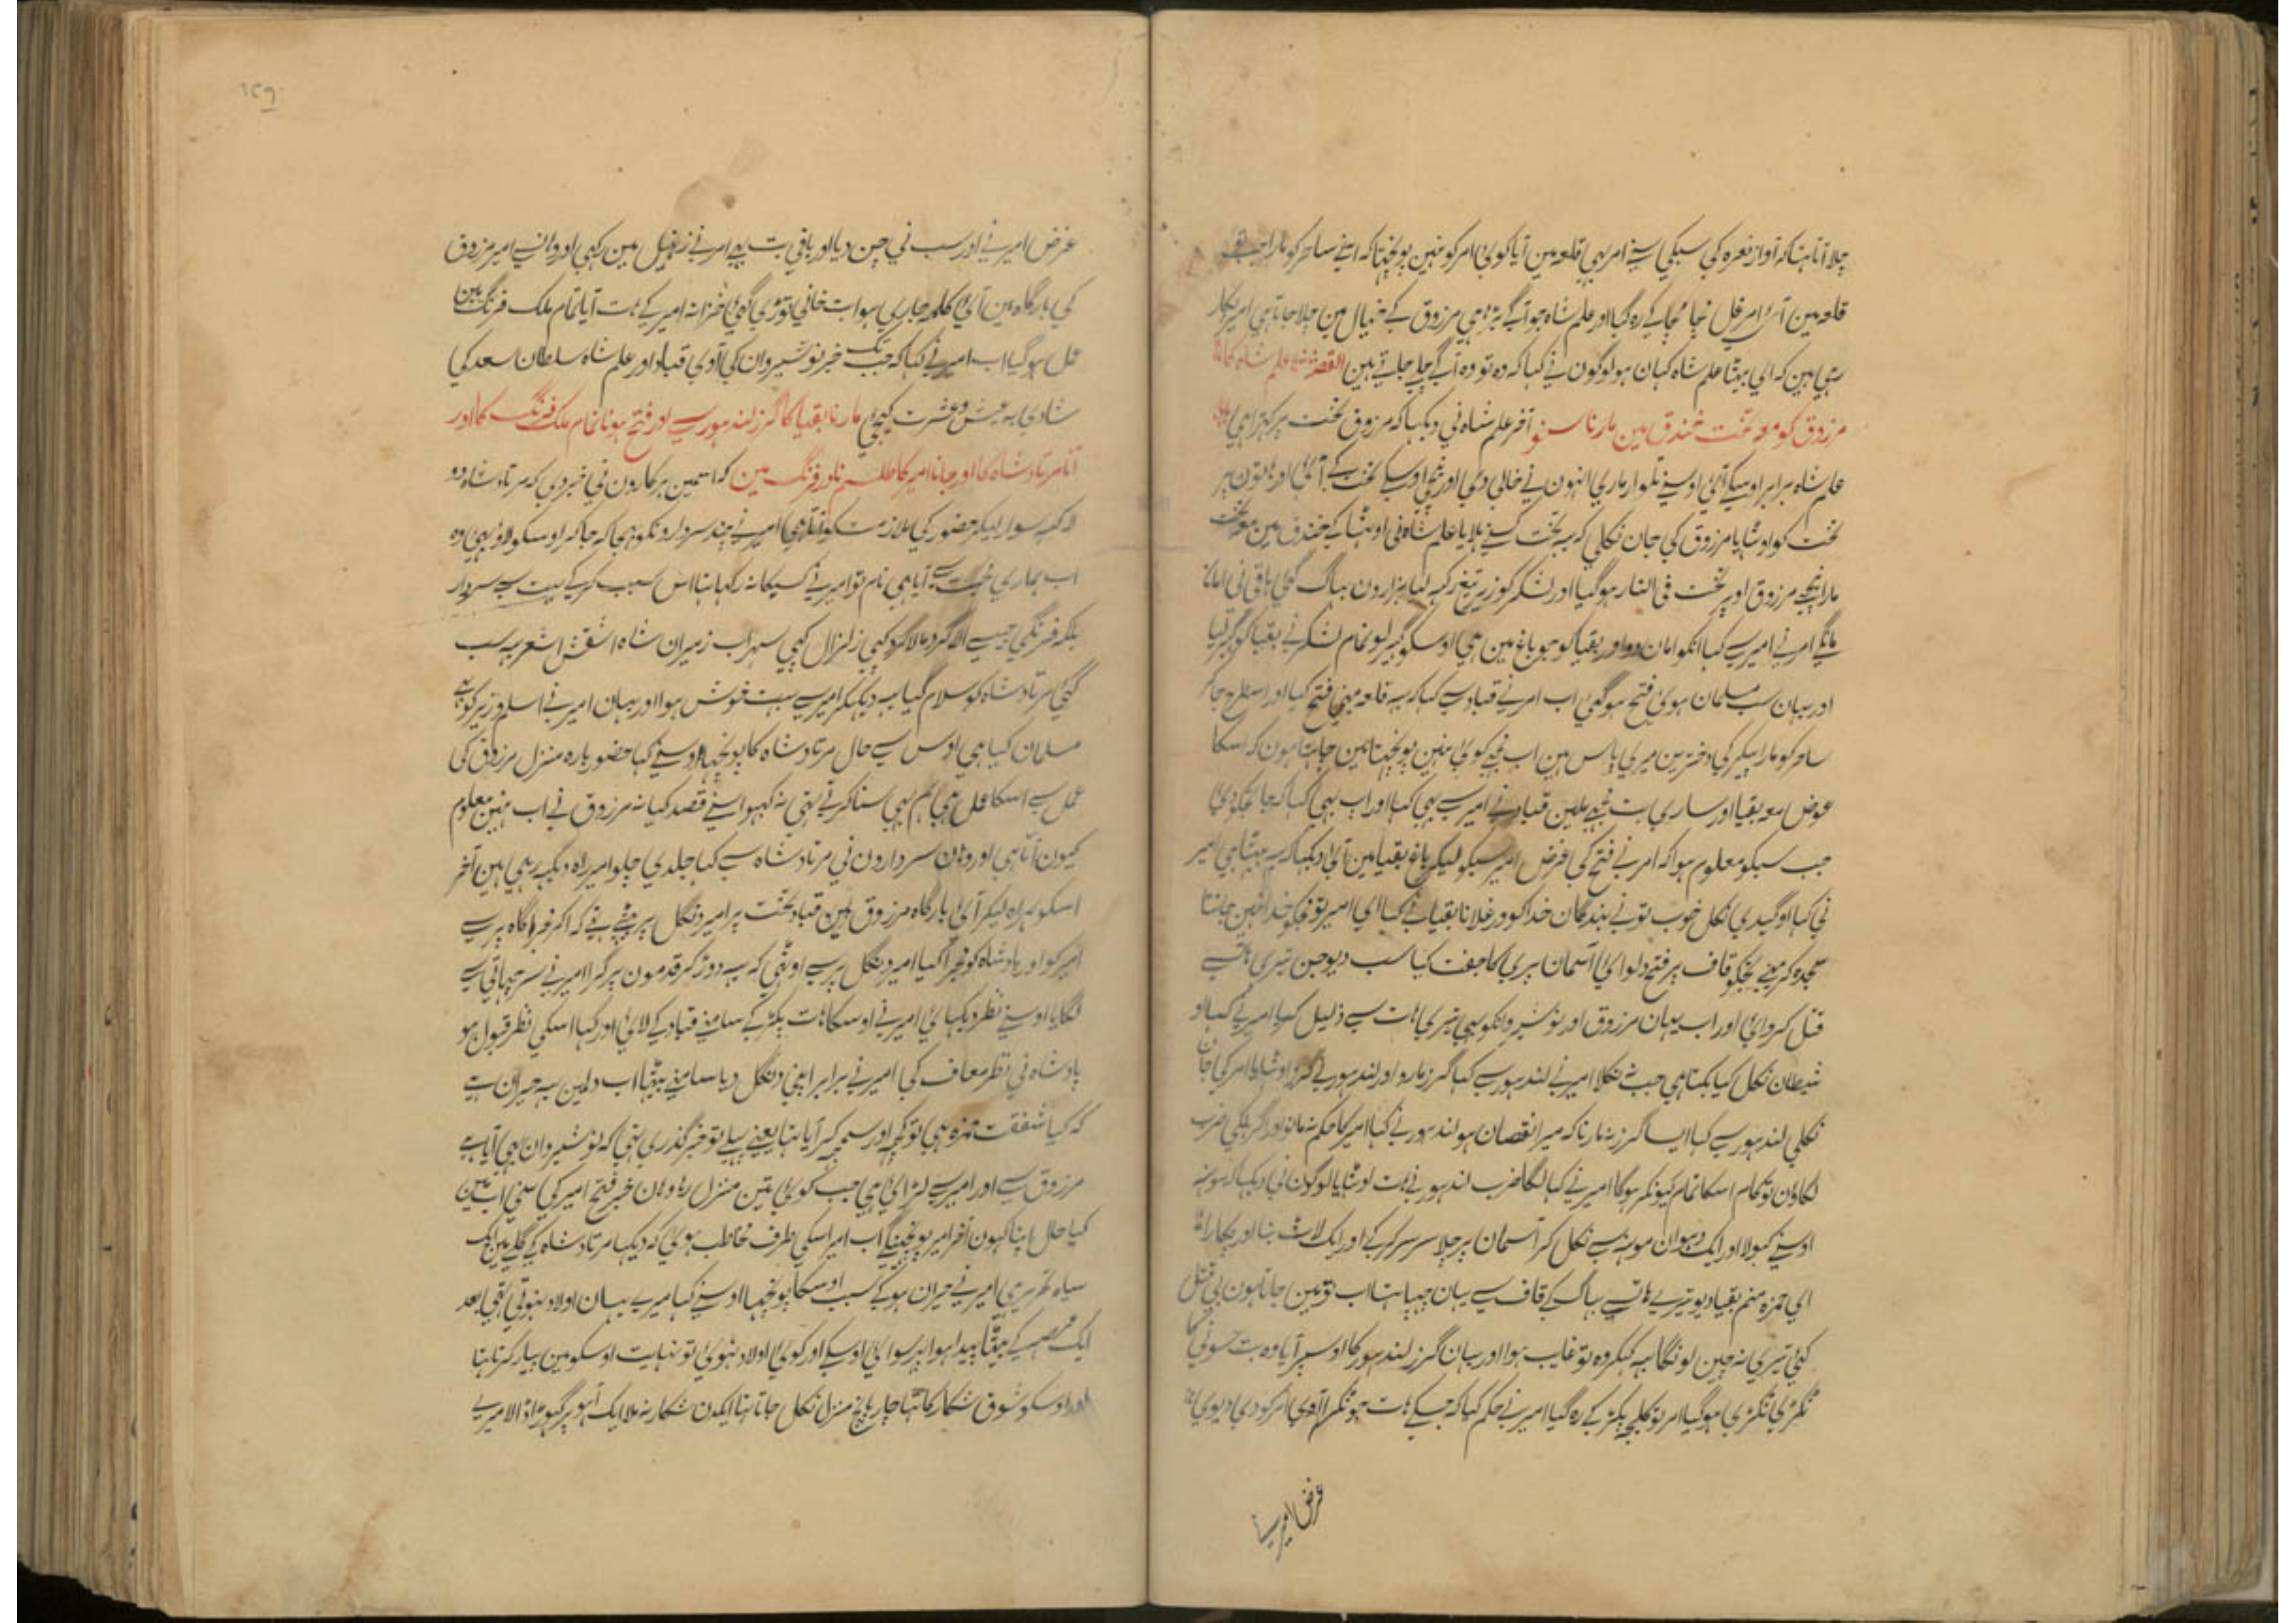 چلا آتا تہا کہ آواز نعرہ کی سبکی سنے امر بہی قلعہ مین آیا کوئی امر کو نہین پونچہتا کہ اسنے ساحر کو مارا جب
قلعہ مین آئی امر غل مچا مچا کے رہ گیا اور علم شاہ جو آگے بڑہی مرزوق کے خیال مین چلا جاتا ہی امیر پکار
رہی ہین کہ ای بیٹا علم شاہ کہان ہو لوگون نے کہا کہ وہ تو وہ آگے چلے جاتے ہین القصہ علم شاہ کا
مرزوق کو معہ تخت خندق مین مارنا سنو آخر علم شاہ نی دیکہا کہ مرزوق تخت پر کہڑا ہی
علم شاہ برابر اوسکے آئی اوسنے تلوار ماری انہون نے خالی دی اور نیچی اوسکے تخت کے آئی اور ہاتون پر
تخت کو اوٹہایا مرزوق کی جان نکلی کہ یہ تخت کسنے ہلایا علم شاہ نی اوٹہا کے خندق مین معہ تخت
مارا نیچے مرزوق اوپر تخت فی النار ہو گیا اور لشکر کو زیر تیغ رکہ لیا ہزارون بہاگ گئی باقی نی امان
مانگے امر نے امیر سے کہا انکو امان دو اور بقیا کو جو باغ مین ہی اوسکو گہیر لو تمام لشکر نے بقیا کو گہیر لیا
اور یہان سب مسلمان ہوئی فتح ہو گئی اب امر نے قباد سے کہا کہ یہ قلعہ مینی فتح کیا اور اسطرح جا کر
ساحر کو مارا پیکر کی دختر مین میری پاس ہین اب مجہے کوئی نہین پونچہتا مین چاہتا ہون کہ اسکا
عوض معہ بقیا اور ساری بت مجہے ملین قباد نے امیر سے بہی کہا اور اب بہی کہا کہ جا مینے دی
جب سبکو معلوم ہوا کہ امر نے فتح کی غرض امیر سبکو لیکر باغ بقیا مین آئی دیکہا کہ یہ بیٹہا ہی امیر
نی کہا او گیدی نکل خوب تو نے بندگان خدا کو ورغلانا بقیا نے کہا ای امیر تو مجکو خدا نہین جانتا
سجدہ کر مینے تجکو قاف پر فتح دلوائی آسمان پری کا جفت کیا سب دیو جن تیری ہات سے
قتل کروائی اور اب یہان مرزوق اور نوشیروانکو بہی تیری ہات سے ذلیل کیا امیر نے کہا او
شیطان نکل کیا بکتا ہی جب نہ نکلا امیر نے لندہور سے کہا گرز مارو اور لندہور نے گرز اوٹہایا امر کی جان
نکلی لندہور سے کہا ایسا گرز نہ مارنا کہ میرا نقصان ہو لندہور نے کہا امیر کا حکم نہ مانون اور اگر ہلکی ضرب
لگاؤن تو کام اسکا تمام کیونکر ہوگا امیر نے کہا لگا ضرب لندہور نے ہات اوٹہایا لوگون نی دیکہا کہ مونہ
اوسنے کہولا اور ایک دہوان مونہ سے نکل کر آسمان پر چلا سر سر کرکے اور ایک لاٹ بنا اور پکارا
ای حمزہ منم بقیا دیو تیرے ہات سے بہاگ کے قاف سے یہان چہپا تہا اب تو مین جاتا ہون بی قتل
کئی تیری نہ چین لونگا یہ کہکر وہ تو غایب ہوا اور یہان گرز لندہور کا اوسپر آیا وہ بت سونی کا
ٹکڑی ٹکڑی ہو گیا امر تو کلیجہ پکڑ کے رہ گیا امیر نے حکم کیا کہ جسکے ہات جو ٹکرا آوی امر کو دی دیوی
غرض امیر نے
۱۵۹
غرض امیر نے اور سب نی چن دیا اور باقی بت بہی امر نے زنبیل مین رکہی اور وہانسے امیر مرزوق
کی بارگاہ مین آئی کلمہ جاری ہوا بت خانی توڑی گئی خزانہ امیر کے ہات آیا تمام ملک فرنگ مین
عمل ہو گیا اب امیر نے کہا کہ جب تک خبر نوشیروان کی آوی قباد اور علم شاہ سلطان سعد کی
شادی بہ عیش و عشرت کیجئی مارنا بقیا کا گرز لندہور سے اور فتح ہونا تمام ملک فرنگ کا اور
آنا مرتادشاہ کا اور جانا امیر کا طلسم نادر فرنگ مین کہ اسمین ہرکارون نی خبر دی کہ مرتاد شاہ دو
لاکہہ سوار لیکر حضور کی ملازمت کو آتا ہی امیر نے چند سردارونکو بہیجا کہ جا کر اوسکو لاؤ بہی وہ
اب ہماری محبت سے آیا ہی نام تو امیر نے کسیکا نہ رکہا تہا اس سبب کرکے بہت سے سردار
بلکہ فرنگی جیسے الاگرد مالاگرد کپی زلزال کپی سہراب زمیران شاہ اشقش اشعر یہ سب
گئی مرتادشاہ کو سلام کیا یہ دیکہکر امیر سے بہت خوش ہوا اور یہان امیر نے اسلم وزیر کو بہی
مسلمان کیا ہی اوس سے حال مرتادشاہ کا پونچہا اوسنے کہا حضور بارہ منزل مرزوق کی
عمل سے اسکا عمل ہی ہم بہی سنا کرتے تہی نہ کبہو اسنے قصد کیا نہ مرزوق نے اب نہین معلوم
کیون آتا ہی اور وہان سردارون نی مرتادشاہ سے کہا جلدی چلو امیر راہ دیکہہ رہی ہین آخر
اسکو ہمراہ لیکر آئی بارگاہ مرزوق مین قباد تخت پر امیر دنگل پر بیٹہے تہے کہ اکر مجراگاہ پر سے
امیر کو اور بادشاہ کو مجرا کیا امیر دنگل پر سے اوٹہی کہ یہ دوڑ کر قدمون پر گرا امیر نے سر چہاتی سے
لگایا اوسنے نظر دیکہائی امیر نے اوسکا ہات پکڑ کے سامنے قباد کے لائی اور کہا اسکی نظر قبول ہو
پادشاہ نی نظر معاف کی امیر نے برابر اپنی دنگل دیا سامنے بیٹہا اب دلمین یہ حیران ہے
کہ کیا شفقت حمزہ ہی تو کچہہ اور سمجہہ کر آیا تہا یعنے پہلے تو خبر گذری تہی کہ نوشیروان بہی آیا ہے
مرزوق سے اور امیر سے لڑائی ہی جب کوئی تین منزل رہا وہان خبر فتح امیر کی سنی اب مین
کیا حال اپنا کہون آخر امیر پونچہینگے اب امیر اسکی طرف مخاطب ہوئی کہ دیکہا مرتادشاہ کے گلے مین ایک
سیاہ تحریر ہی امیر نے حیران ہو کے سبب اوسکا پونچہا اوسنے کہا میرے یہان اولاد نہوتی تہی بعد
ایک عرصہ کے بیٹا پیدا ہوا پر سوائی اوسکے اور کوئی اولاد نہوئی تو نہایت اوسکو مین پیار کرتا تہا
اور اوسکو شوق شکار کا تہا چار پانچ منزل نکل جاتا تہا ایکدن شکار نہ ملا ایک آہو پر گہوڑا ڈالا میرے